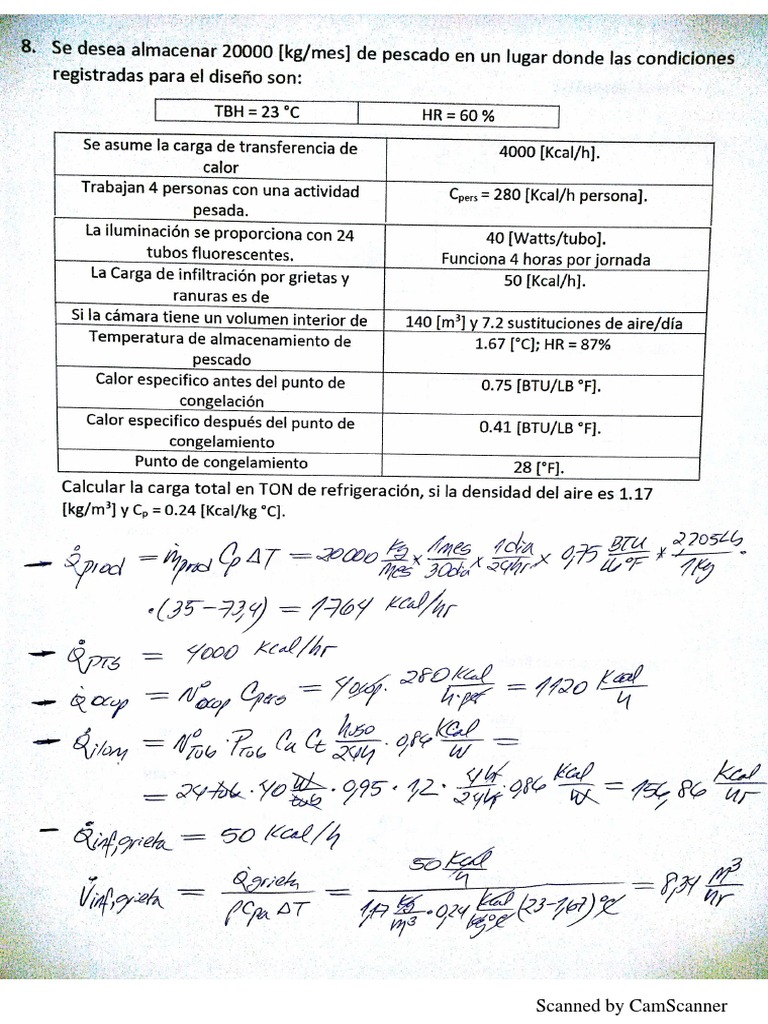 8. Se desea almacenar 20000 [kg/mes] de pescado en un lugar donde las condiciones
registradas para el diseño son:
TBH = 23 °C HR = 60 %
Se asume la carga de transferencia de
calor
4000 [Kcal/h].
Trabajan 4 personas con una actividad
pesada.
Cpers = 280 [Kcal/h persona].
La iluminación se proporciona con 24
tubos fluorescentes.
40 [Watts/tubo].
Funciona 4 horas por jornada
La Carga de infiltración por grietas y
ranuras es de
50 [Kcal/h].
Si la cámara tiene un volumen interior de 140 [m³] y 7.2 sustituciones de aire/día
Temperatura de almacenamiento de
pescado
1.67 [°C]; HR = 87%
Calor especifico antes del punto de
congelación
0.75 [BTU/LB °F].
Calor especifico después del punto de
congelamiento
0.41 [BTU/LB °F].
Punto de congelamiento 28 [°F].
Calcular la carga total en TON de refrigeración, si la densidad del aire es 1.17
[kg/m³] y Cp = 0.24 [Kcal/kg °C].
– Q̊prod = ṁprod Cp ΔT = 20000 Kg/mes × 1mes/30dia × 1dia/24hr × 0,75 BTU/Lb°F * 2,205Lb/1Kg ·
·(35–73,4) = 1764 Kcal/hr
– Q̊PTS = 4000 Kcal/hr
– Q̊ocup = N°ocup Cpers = 4ocup. 280 Kcal/h·per = 1120 Kcal/h
– Q̊ilum = N°Tub · PTub Cu Ct huso/24h · 0,86 Kcal/W =
= 24 tub · 40 W/tub · 0,95 · 1,2 · 4hr/24hr · 0,86 Kcal/W = 156,86 Kcal/hr
– Q̊inf,grieta = 50 Kcal/h
V̊inf,grieta = Q̊grieta/ρCpa ΔT = 50 Kcal/h / 1,17 Kg/m³ · 0,24 Kcal/Kg°C (23–1,67)°C = 8,34 m³/hr
Scanned by CamScanner